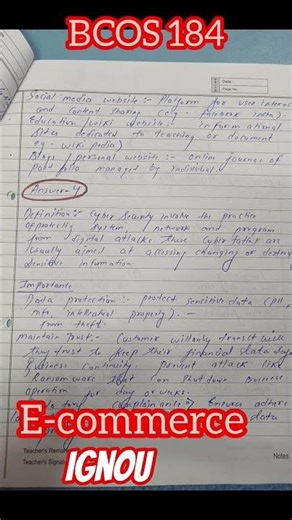 BCOS 184
Date :
Page No.
Social media website :- Platform for user interac
and content sharing (eg.
Education / wiki website :- informational
sites dedicated to teaching or document
eg - wikipedia)
Blogs / personal website :- online journals of
managed by individual.
Answer-4
Definition :- Cyber Security involve the practice
of system network and program
from digital attacks. These cyber
usually aimed at accessing changing or
sensitive information.
Importance
Data protection :- protect sensitive data (PII,
property). -
from theft
maintain trust :- customer will only transact with
they trust to keep their financial data
Business continuity prevent attack like
Ransomware that can shutdown business
operation for day or weeks.
Ensure adhere
data
E-commerce
IGNOU
Teacher's Remar
Teacher's Signatu
Notes